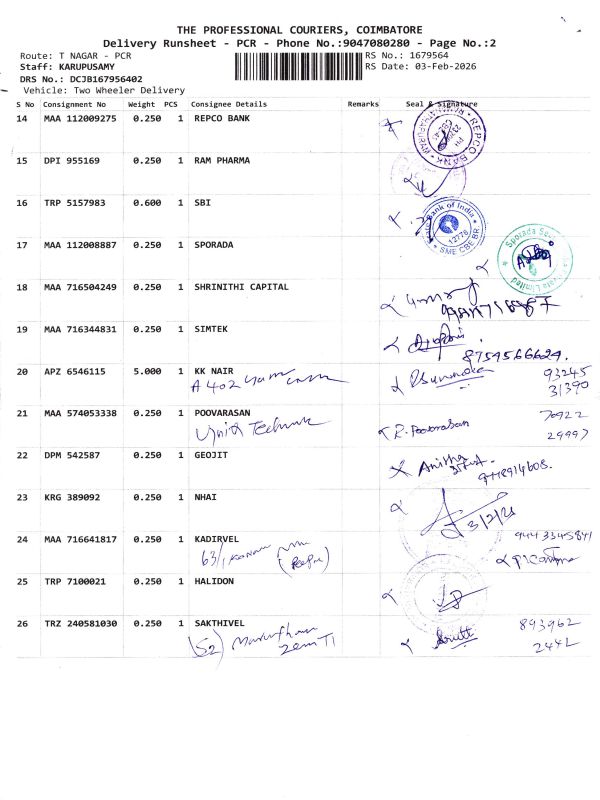 THE PROFESSIONAL COURIERS, COIMBATORE
Delivery Runsheet - PCR - Phone No.:9047080280 - Page No.:2
Route: T NAGAR - PCR RS No.: 1679564
Staff: KARUPUSAMY RS Date: 03-Feb-2026
DRS No.: DCJB167956402
Vehicle: Two Wheeler Delivery
S No Consignment No Weight PCS Consignee Details Remarks Seal & Signature
14 MAA 112009275 0.250 1 REPCO BANK
REPCO BANK
15 DPI 955169 0.250 1 RAM PHARMA
16 TRP 5157983 0.600 1 SBI
Bank of India
12778
SME CBE BR
17 MAA 112008887 0.250 1 SPORADA
Sporada Limited
18 MAA 716504249 0.250 1 SHRINITHI CAPITAL
19 MAA 716344831 0.250 1 SIMTEK
8754566624.
20 APZ 6546115 5.000 1 KK NAIR
A 402 93245
31390
21 MAA 574053338 0.250 1 POOVARASAN
R. Poovarasan 70922
29997
22 DPM 542587 0.250 1 GEOJIT
Anitha
23 KRG 389092 0.250 1 NHAI
3/2/26
24 MAA 716641817 0.250 1 KADIRVEL
63/1
25 TRP 7100021 0.250 1 HALIDON
26 TRZ 240581030 0.250 1 SAKTHIVEL
(52) 893962
2442